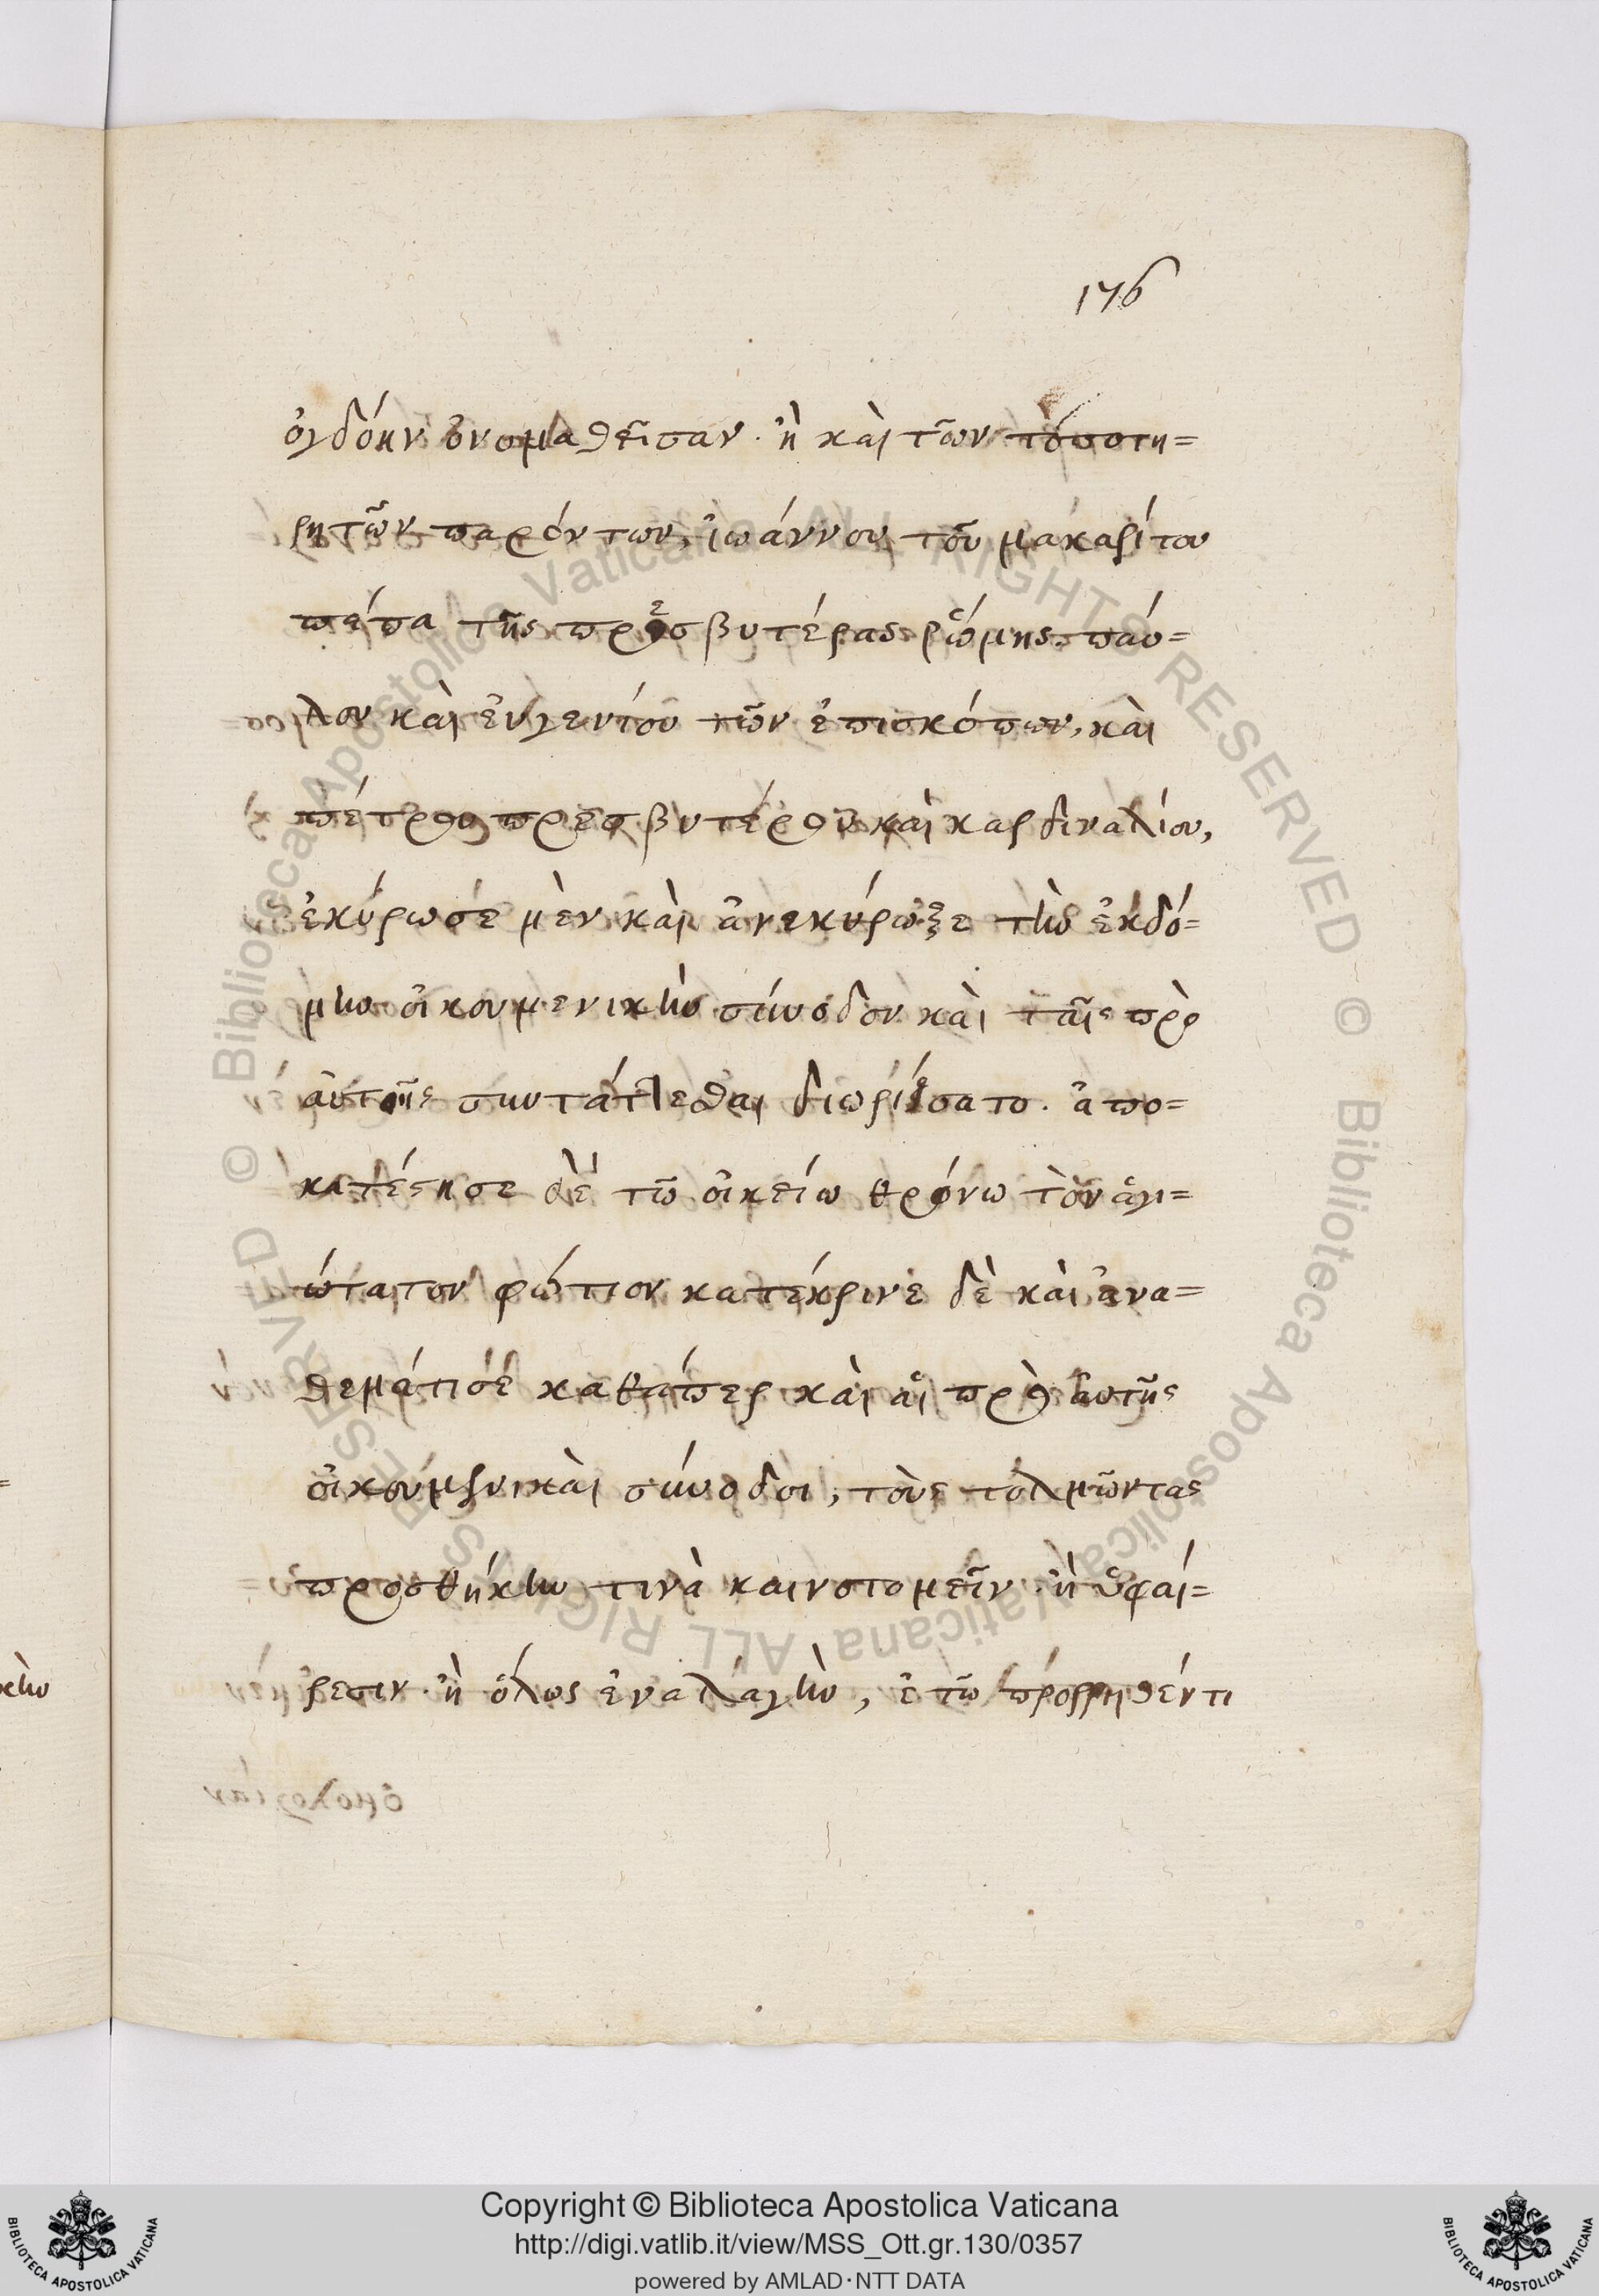 176
ὀγδόην ὀνομαθεῖσαν· ἢ καὶ τῶν τόποτη=
ρητῶν παρόντων, ἰωάννου τοῦ μακαρίτου
πάπα τῆς πρεσβυτέρας ῥώμης παύ=
λου καὶ εὐγενίου τῶν ἐπισκόπων, καὶ
πέτρου πρεσβυτέρου καὶ καρδιναλίου,
ἐκύρωσέ μὲν καὶ ἀνεκύρωξε τὴν ἑκδό=
μην οἰκουμενικὴν σύνοδον καὶ ταῖς πρὸ
αὐτῆς συντάττεσθαι διωρίσατο. ἀπο=
κατέστησε δὲ τῶ οἰκείω θρόνω τὸν ἁγι=
ώτατον φώτιον κατέκρινε δὲ καὶ ἀνα=
θεμάτισέ καθάπερ καὶ αἱ πρὸ αὐτῆς
οἰκουμενικαὶ σύνοδοι, τοὺς τολμῶντας
προσθήκην τινὰ καινοτομεῖν· ἢ ὑφαί=
ρεσιν· ἢ ὅλως ἐναλαγὴν, ἐ τῶ προρρηθέντι
Copyright © Biblioteca Apostolica Vaticana
http://digi.vatlib.it/view/MSS_Ott.gr.130/0357
powered by AMLAD·NTT DATA
BIBLIOTECA APOSTOLICA VATICANA
BIBLIOTECA APOSTOLICA VATICANA
© Biblioteca Apostolica Vaticana ALL RIGHTS RESERVED © Biblioteca Apostolica Vaticana ALL RIGHTS RESERVED